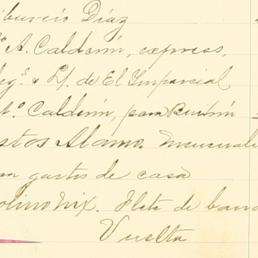 iburcio Díaz
º A. Calderón, express.
eg.s & Lf. de El Imparcial
t.º Calderón, para Quirín
stos Alamo. Mensuali
n gastos de casa
olino Mix. Flete de ban
Vuelta